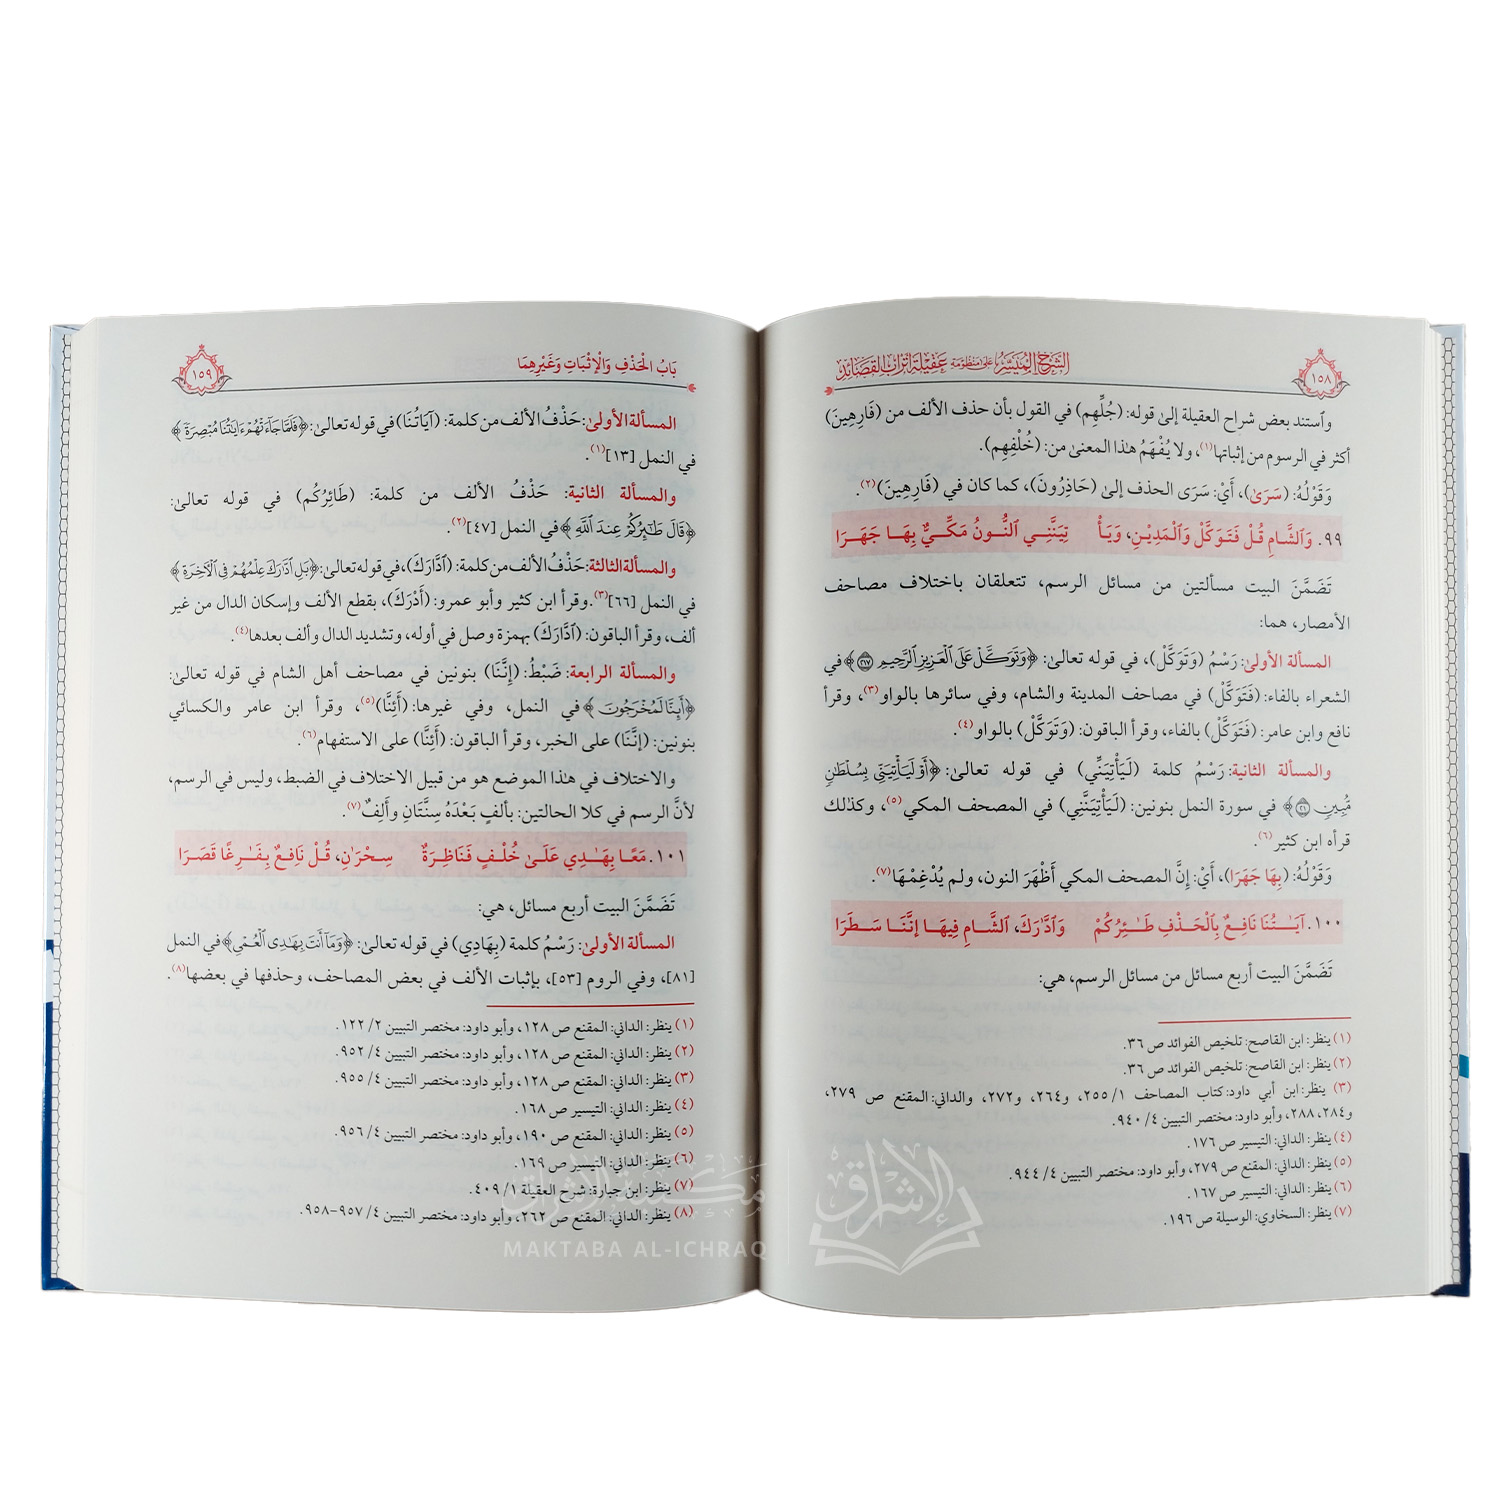 ١٥٨
الشرح الميسر على منظومة عقيلة أتراب القصائد
وٱستند بعض شراح العقيلة إلىٰ قوله: (جُلِّهِم) في القول بأن حذف الألف من (فَارِهِينَ)
أكثر في الرسوم من إثباتها(١)، ولا يُفْهَمُ هذا المعنىٰ من: (خُلْفِهِم).
وَقَوْلُهُ: (سَرَىٰ)، أَيْ: سَرَى الحذف إلىٰ (حَاذِرُونَ)، كما كان في (فَارِهِينَ)(٢).
٩٩. وَٱلشَّامِ قُل فَتَوَكَّلْ وَٱلْمَدِيْنِ، وَيَأْ تِيَنَّنِي ٱلنُّونُ مَكِّيٌّ بِهَا جَهَرَا
تَضَمَّنَ البيت مسألتين من مسائل الرسم، تتعلقان باختلاف مصاحف
الأمصار، هما:
المسألة الأولىٰ: رَسْمُ (وَتَوَكَّلْ)، في قوله تعالىٰ: ﴿وَتَوَكَّلْ عَلَى ٱلْعَزِيزِ ٱلرَّحِيمِ ٢١٧﴾ في
الشعراء بالفاء: (فَتَوَكَّلْ) في مصاحف المدينة والشام، وفي سائرها بالواو(٣)، وقرأ
نافع وابن عامر: (فَتَوَكَّلْ) بالفاء، وقرأ الباقون: (وَتَوَكَّلْ) بالواو(٤).
والمسألة الثانية: رَسْمُ كلمة (لَيَأْتِيَنِّي) في قوله تعالىٰ: ﴿أَوْ لَيَأْتِيَنِّي بِسُلْطَٰنٖ
مُّبِينٖ ٢١﴾ في سورة النمل بنونين: (لَيَأْتِيَنَّنِي) في المصحف المكي(٥)، وكذلك
قرأه ابن كثير(٦).
وَقَوْلُهُ: (بِهَا جَهَرَا)، أَيْ: إنَّ المصحف المكي أَظْهَرَ النون، ولم يُدْغِمْهَا(٧).
١٠٠. آيَـٰتُنَا نَافِعٌ بِٱلْحَذْفِ طَـٰٓئِرُكُمْ وَٱدَّارَكَ، ٱلشَّامِ فِيهَا إنَّنَا سَطَرَا
تَضَمَّنَ البيت أربع مسائل من مسائل الرسم، هي:
(١) ينظر: ابن القاصح: تلخيص الفوائد ص ٣٦.
(٢) ينظر: ابن القاصح: تلخيص الفوائد ص ٣٦.
(٣) ينظر: ابن أبي داود: كتاب المصاحف ١/ ٢٥٥، و٢٦٤، و٢٧٢، والداني: المقنع ص ٢٧٩،
و٢٨٤، ٢٨٨، وأبو داود: مختصر التبيين ٤/ ٩٤٠.
(٤) ينظر: الداني: التيسير ص ١٧٦.
(٥) ينظر: الداني: المقنع ص ٢٧٩، وأبو داود: مختصر التبيين ٤/ ٩٤٤.
(٦) ينظر: الداني: التيسير ص ١٦٧.
(٧) ينظر: السخاوي: الوسيلة ص ١٩٦.
بَابُ الْحَذْفِ وَالْإِثْبَاتِ وَغَيْرِهِمَا
١٥٩
المسألة الأولىٰ: حَذْفُ الألف من كلمة: (آيَاتُنَا) في قوله تعالىٰ: ﴿فَلَمَّا جَآءَتْهُمْ ءَايَٰتُنَا مُبْصِرَةٗ﴾
في النمل [١٣](١).
والمسألة الثانية: حَذْفُ الألف من كلمة: (طَائِرُكُم) في قوله تعالىٰ:
﴿قَالَ طَٰٓئِرُكُمْ عِندَ ٱللَّهِ﴾ في النمل [٤٧](٢).
والمسألة الثالثة: حَذْفُ الألف من كلمة: (ٱدَّارَكَ)، في قوله تعالىٰ: ﴿بَلِ ٱدَّٰرَكَ عِلْمُهُمْ فِي ٱلْأٓخِرَةِ﴾
في النمل [٦٦](٣). وقرأ ابن كثير وأبو عمرو: (أَدْرَكَ)، بقطع الألف وإسكان الدال من غير
ألف، وقرأ الباقون: (ٱدَّارَكَ) بهمزة وصل في أوله، وتشديد الدال وألف بعدها(٤).
والمسألة الرابعة: ضَبْطُ: (إِنَّنَا) بنونين في مصاحف أهل الشام في قوله تعالىٰ:
﴿أَئِنَّا لَمُخْرَجُونَ﴾ في النمل، وفي غيرها: (أَئِنَّا)(٥)، وقرأ ابن عامر والكسائي
بنونين: (إِنَّنَا) على الخبر، وقرأ الباقون: (أَئِنَّا) على الاستفهام(٦).
والاختلاف في هٰذا الموضع هو من قبيل الاختلاف في الضبط، وليس في الرسم،
لأنَّ الرسم في كلا الحالتين: بألفٍ بَعْدَهُ سِنَّتَانِ وأَلِفٌ(٧).
١٠١. مَعًا بِهَـٰدِي عَلَىٰ خُلْفٍ فَنَاظِرَةٌ سِحْرَٰنِ، قُلْ نَافِعٌ بِفَـٰرِغًا قَصَرَا
تَضَمَّنَ البيت أربع مسائل، هي:
المسألة الأولىٰ: رَسْمُ كلمة (بِهَادِي) في قوله تعالىٰ: ﴿وَمَآ أَنتَ بِهَٰدِي ٱلْعُمْيِ﴾ في النمل
[٨١]، وفي الروم [٥٣]، بإثبات الألف في بعض المصاحف، وحذفها في بعضها(٨).
(١) ينظر: الداني: المقنع ص ١٢٨، وأبو داود: مختصر التبيين ٢/ ١٢٢.
(٢) ينظر: الداني: المقنع ص ١٢٨، وأبو داود: مختصر التبيين ٤/ ٩٥٢.
(٣) ينظر: الداني: المقنع ص ١٢٨، وأبو داود: مختصر التبيين ٤/ ٩٥٥.
(٤) ينظر: الداني: التيسير ص ١٦٨.
(٥) ينظر: الداني: المقنع ص ١٩٠، وأبو داود: مختصر التبيين ٤/ ٩٥٦.
(٦) ينظر: الداني: التيسير ص ١٦٩.
(٧) ينظر: ابن جبارة: شرح العقيلة ١/ ٤٠٩.
(٨) ينظر: الداني: المقنع ص ٢٦٢، وأبو داود: مختصر التبيين ٤/ ٩٥٧-٩٥٨.
مكتبة الإشراق
MAKTABA AL-ICHRAQ
الإشراق